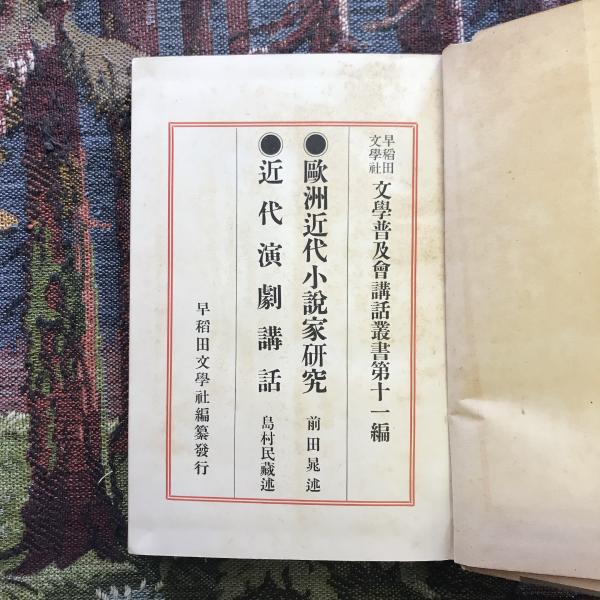 早稲田
文學社
文學普及會講話叢書第十一編
●歐洲近代小說家研究
前田晁述
●近代演劇講話
島村民藏述
早稲田文學社編纂發行